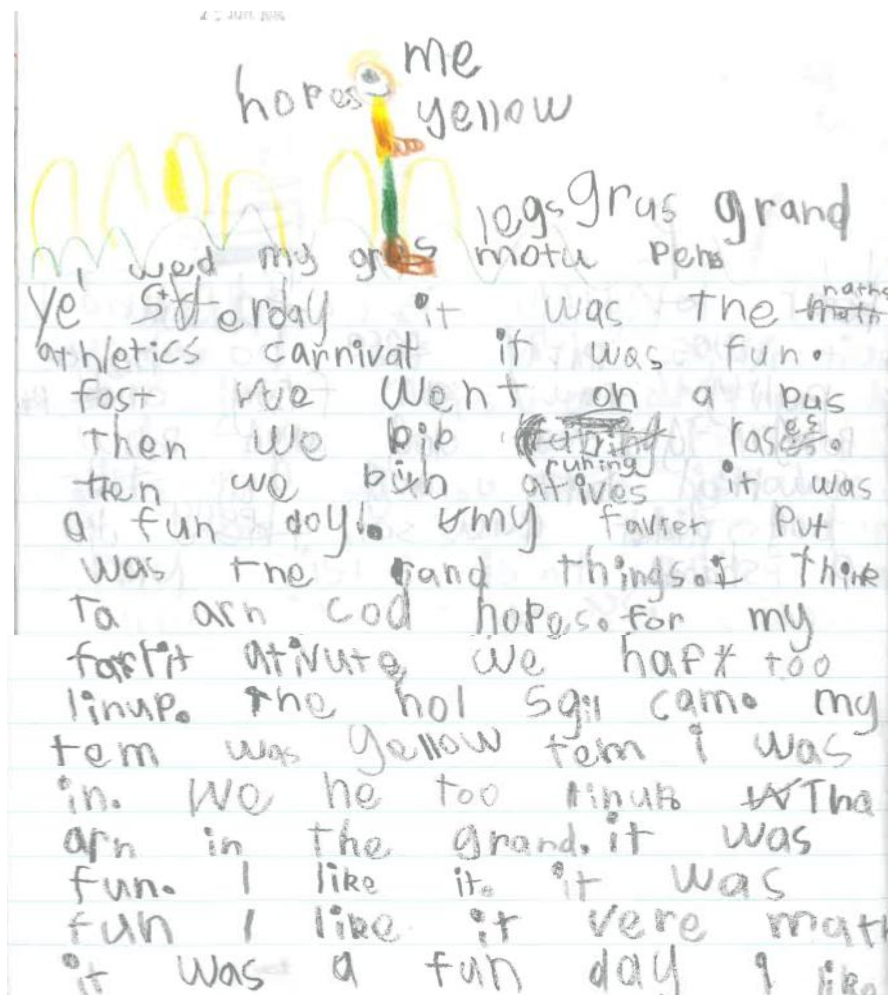 me
hopes yellow
legs grus grand
wed my gras motu pens
yesterday it was the
athletics carnival it was fun.
fost we went on a bus
then we bib rases.
runing
then we bib ativies it was
a fun doy. my favier put
was the rand things. I think
Ta arn cod hopos. for my
ativute we haft too
linup. the hol sgil cam. my
tem was yellow tem i was
in. we he too linup Tha
arn in the grand. it was
fun. I like it. it was
fun I like it vere math
it was a fun day I like